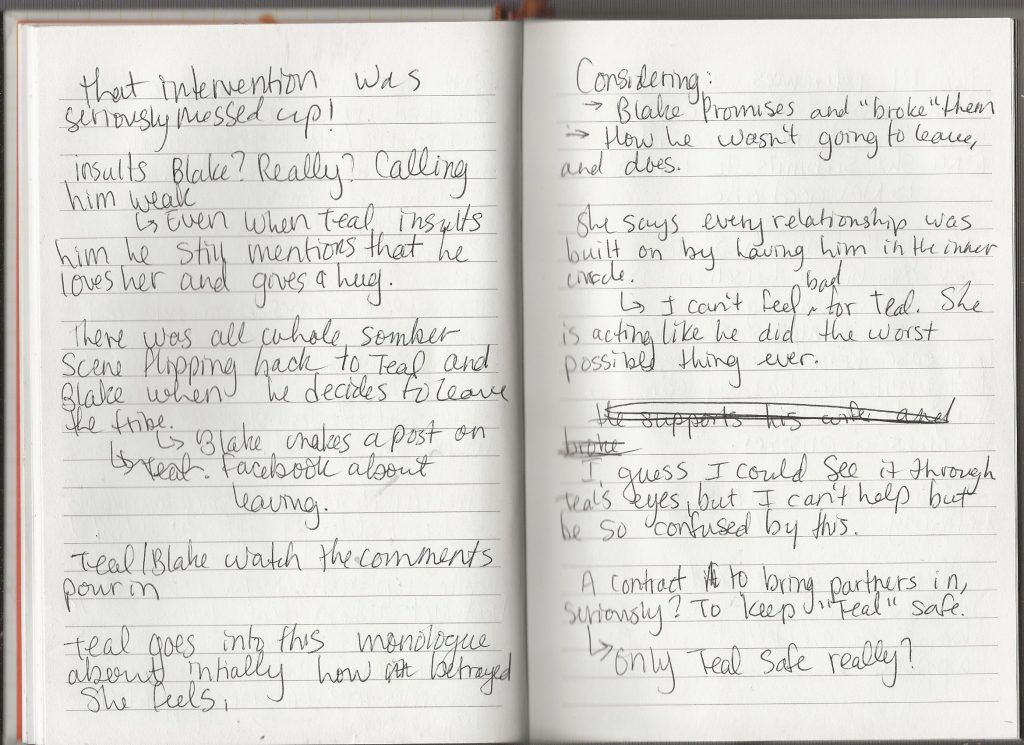 that intervention was
seriously messed up!
insults Blake? Really? Calling
him weak
↳ Even when teal insults
him he still mentions that he
loves her and gives a hug.
There was all whole somber
Scene flipping back to Teal and
Blake when he decides to leave
the tribe.
↳ Blake makes a post on
↳ Teal. Facebook about
leaving.
Teal/Blake watch the comments
pour in
teal goes into this monologue
about intially how betrayed
She feels,
Considering:
→ Blake Promises and "broke" them
→ How he wasn't going to leave,
and does.
She says every relationship was
built on by having him in the inner
circle.
↳ I can't feel bad for Teal. She
is acting like he did the worst
possible thing ever.
He supports his wife and
broke
I guess I could see it through
teal's eyes, but I can't help but
be so confused by this.
A contract to bring partners in,
seriously? To keep "Teal" safe.
↳ only Teal safe really?